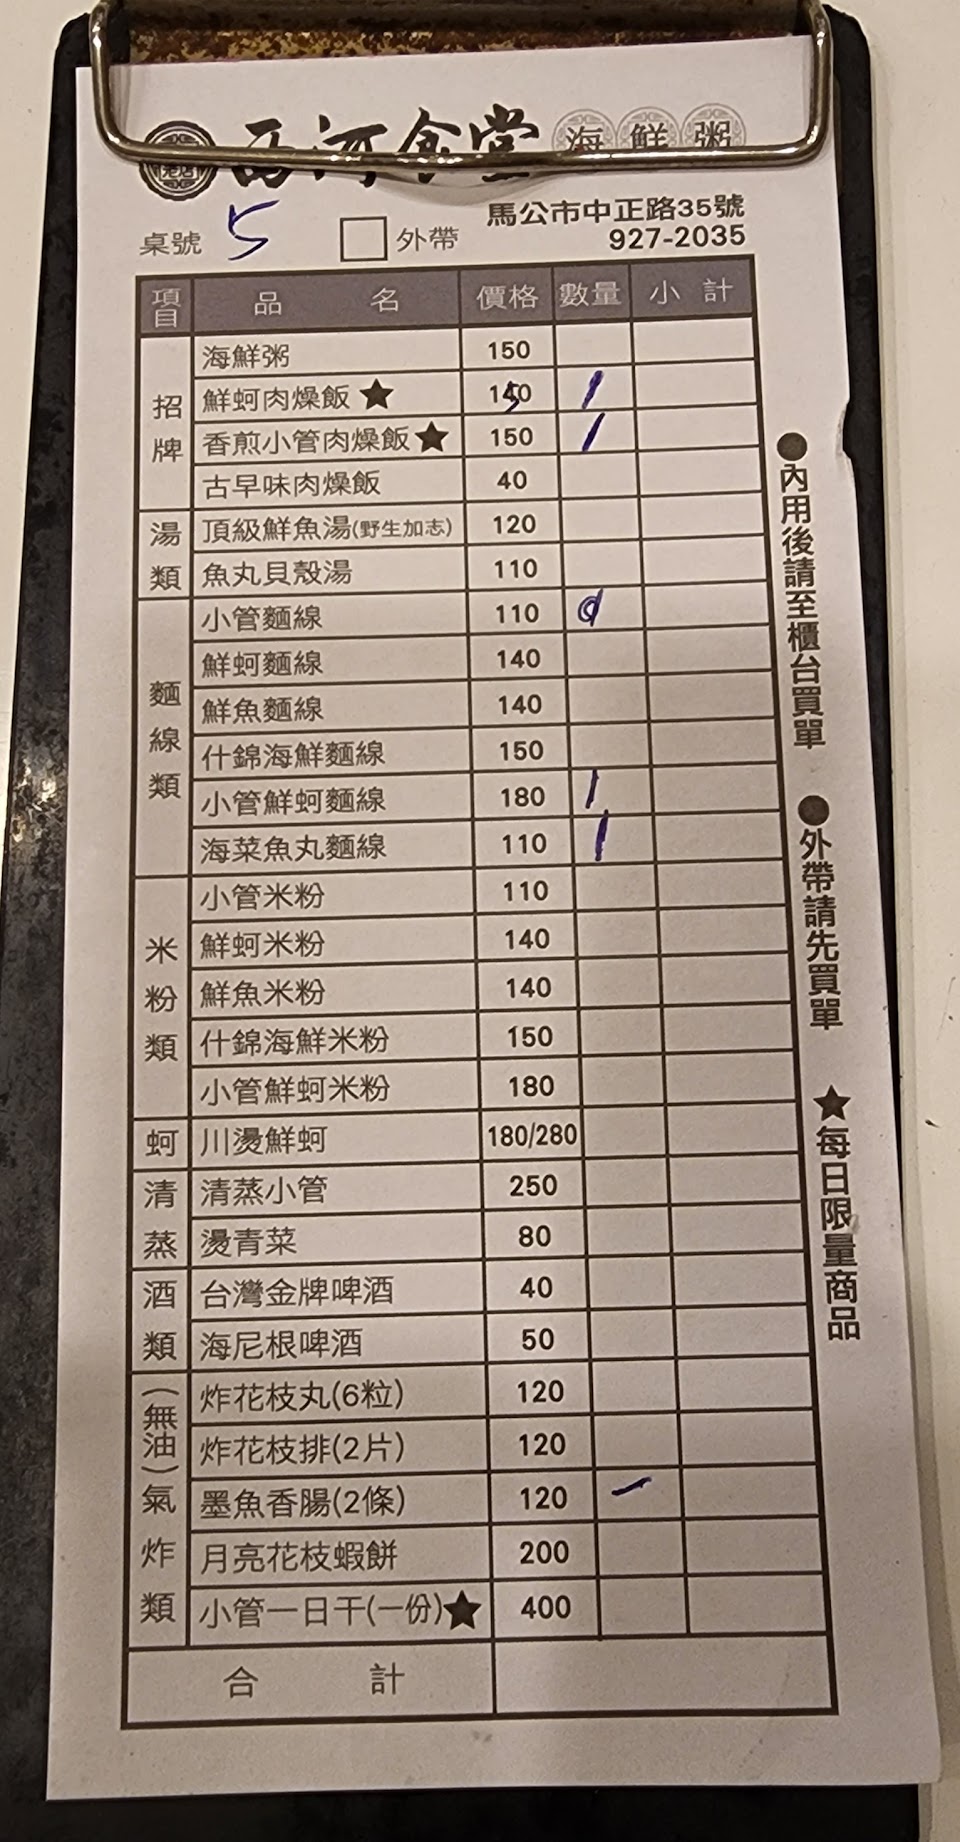 老店 西河食堂 海鮮粥
馬公市中正路35號
桌號 5 外帶 927-2035
項目 品名 價格 數量 小計
招牌
海鮮粥 150
鮮蚵肉燥飯★ 140 5 /
香煎小管肉燥飯★ 150 /
古早味肉燥飯 40
湯類
頂級鮮魚湯(野生加志) 120
魚丸貝殼湯 110
麵線類
小管麵線 110
鮮蚵麵線 140
鮮魚麵線 140
什錦海鮮麵線 150
小管鮮蚵麵線 180 /
海菜魚丸麵線 110 /
米粉類
小管米粉 110
鮮蚵米粉 140
鮮魚米粉 140
什錦海鮮米粉 150
小管鮮蚵米粉 180
蚵
川燙鮮蚵 180/280
清蒸
清蒸小管 250
燙青菜 80
酒類
台灣金牌啤酒 40
海尼根啤酒 50
(無油)氣炸類
炸花枝丸(6粒) 120
炸花枝排(2片) 120
墨魚香腸(2條) 120 一
月亮花枝蝦餅 200
小管一日干(一份)★ 400
合計
●內用後請至櫃台買單 ●外帶請先買單 ★每日限量商品